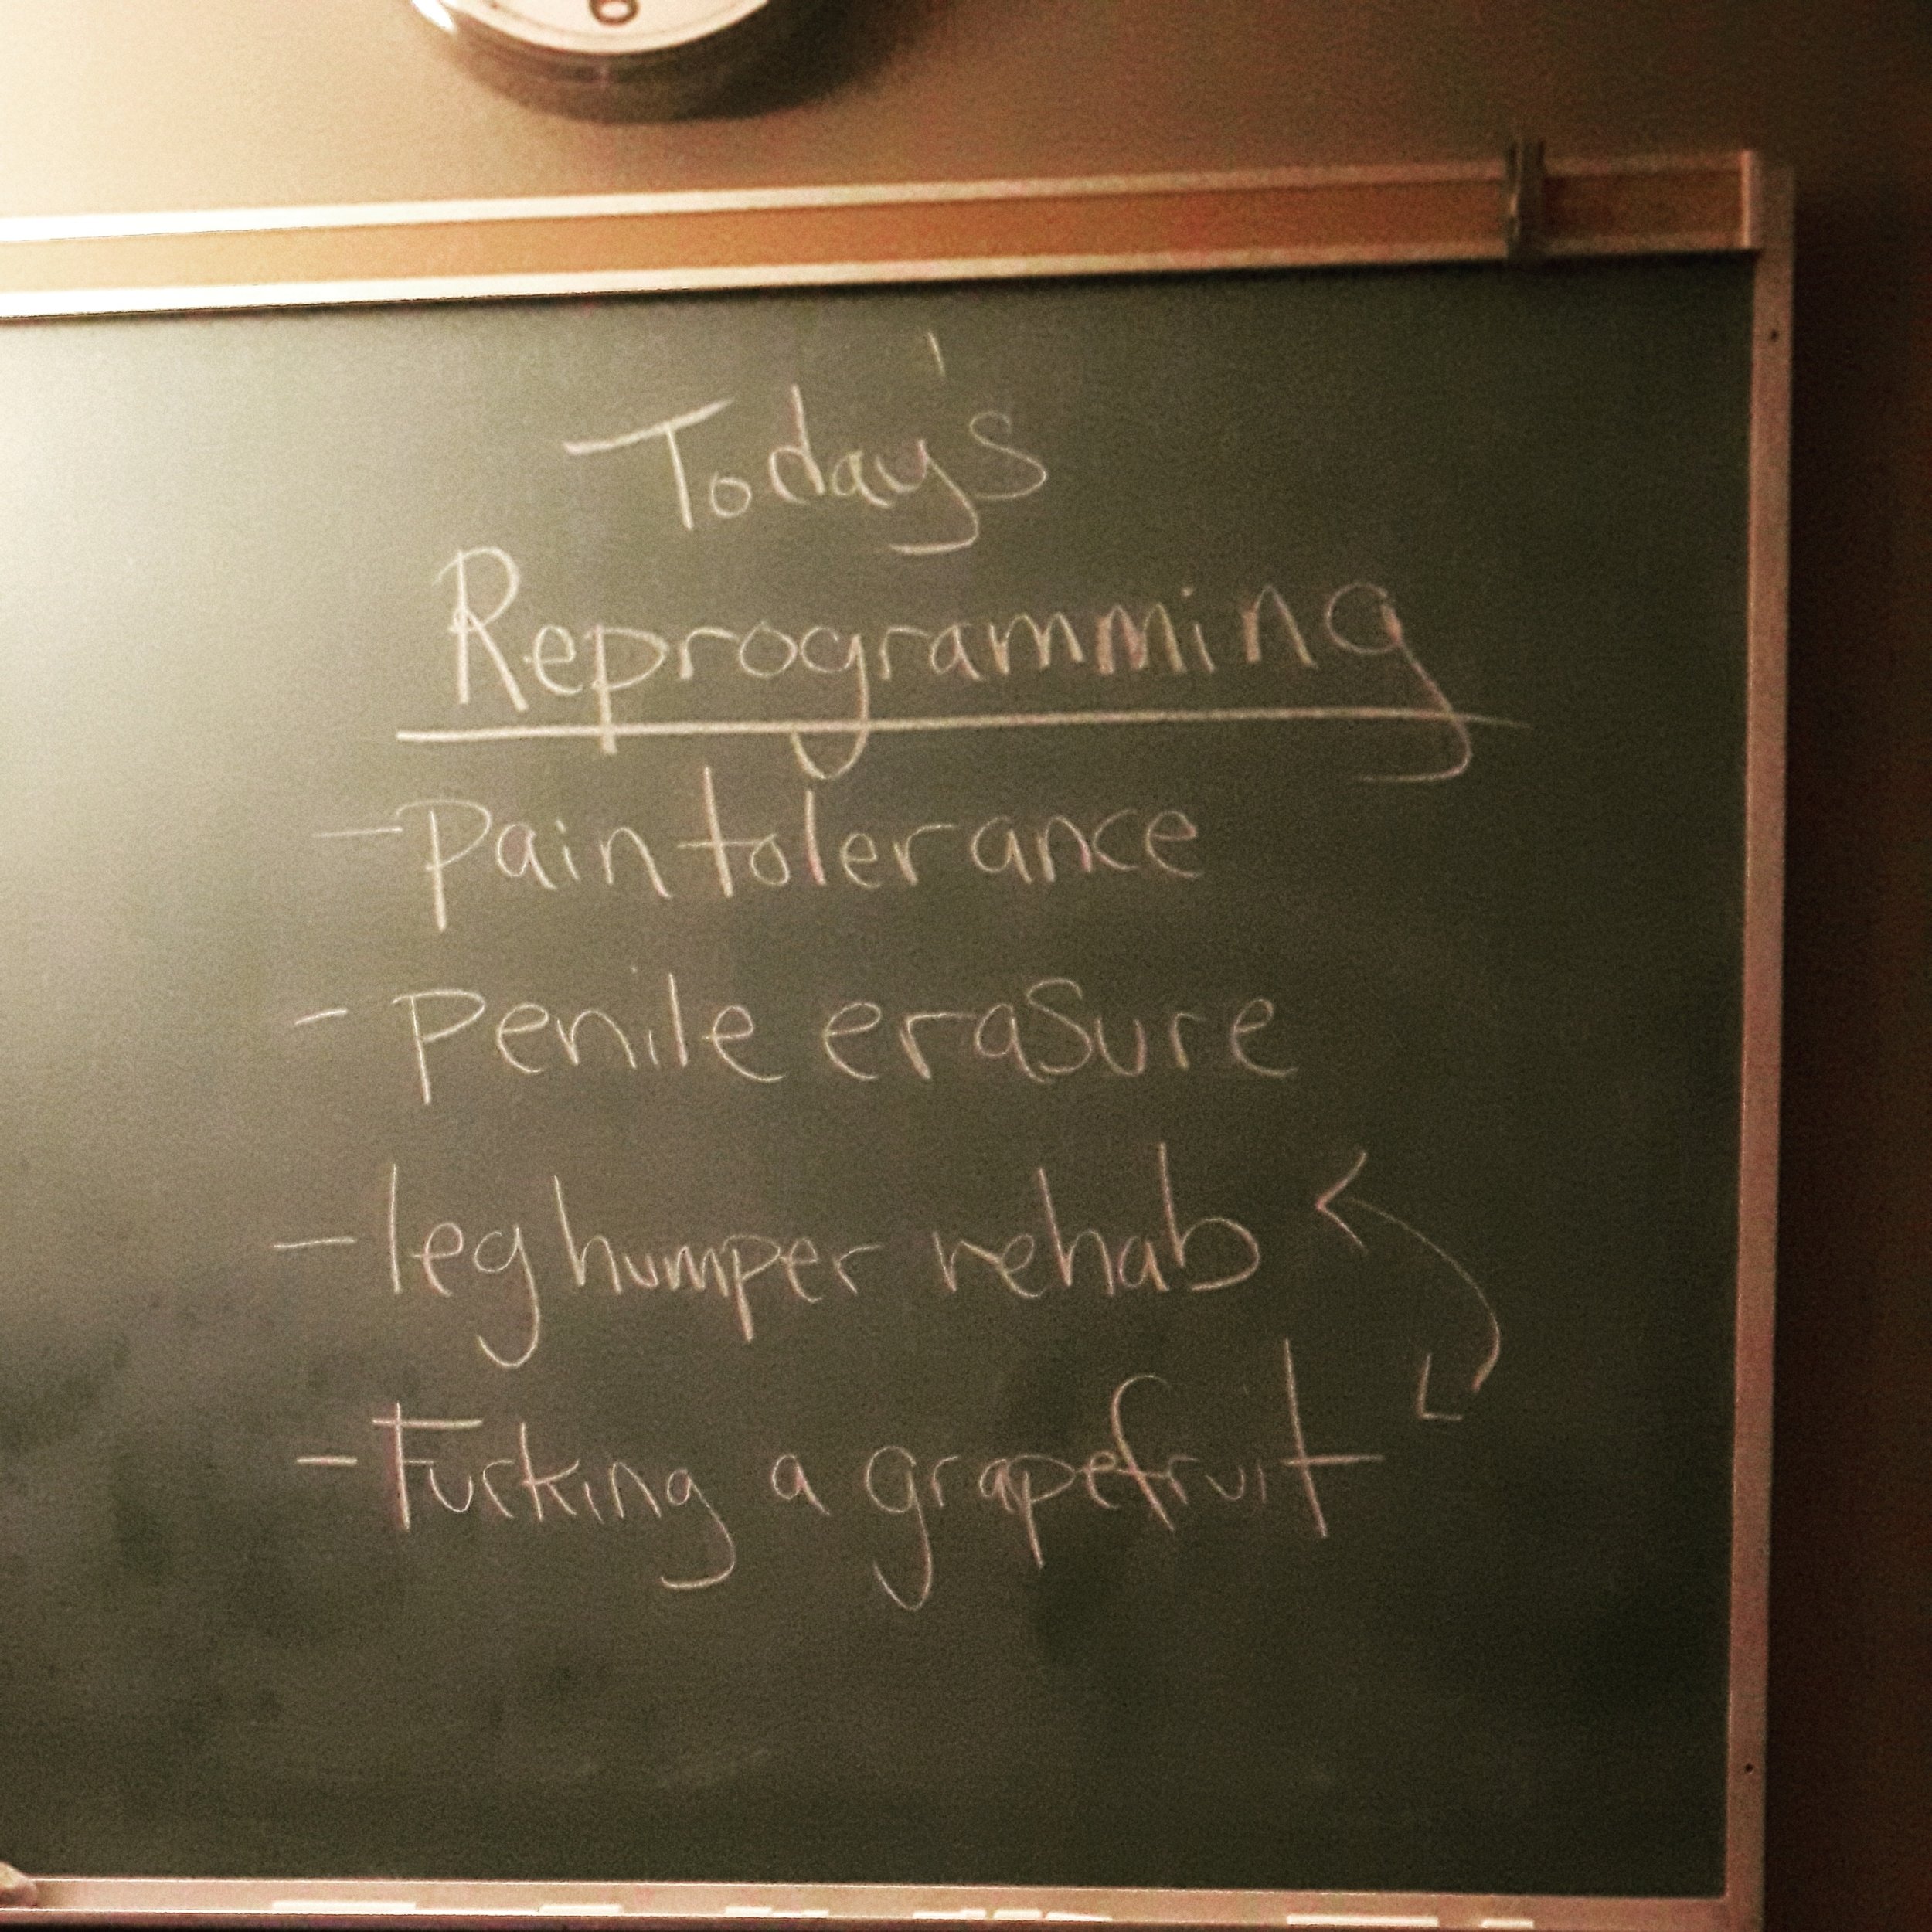 6
Today's
Reprogramming
- Pain tolerance
- Penile erasure
- leg humper rehab
- Fucking a grapefruit